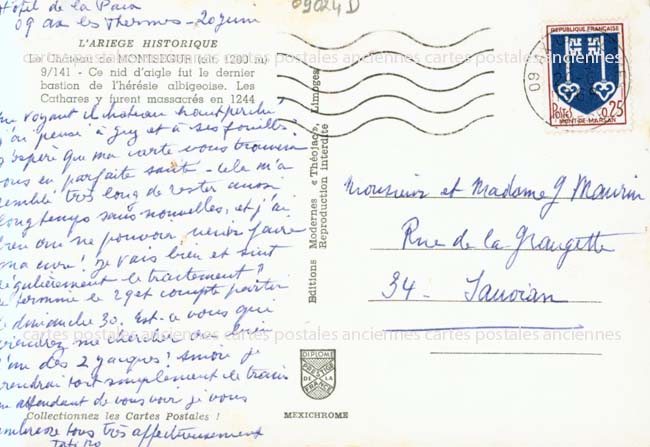 Hôtel de la Paix
09 ax les Thermes - 20 juin
L'ARIEGE HISTORIQUE
Le Château de MONTSEGUR (alt. 1200 m)
9/141 - Ce nid d'aigle fut le dernier
bastion de l'hérésie albigeoise. Les
Cathares y furent massacrés en 1244
En voyant il château haut perché,
j'ai pensé à guy et à ses fouilles!
J'espère que ma carte vous trouvera
tous en parfaite santé - Cela m'a
semblé très long de rester aussi
longtemps sans nouvelles, et j'ai
cru ne pouvoir venir faire
ma cure! Je vais bien et suis
régulièrement le traitement
Je termine le 29 et compte partir
le dimanche 30. Est-ce vous qui
viendrez me chercher ou bien
l'un des 2 jacques? Sinon je
prendrai tout simplement le train
En attendant de vous voir je vous
embrasse tous très affectueusement
Collectionnez les Cartes Postales !
Editions Modernes « Théojac », Limoges
Reproduction interdite
DIPLOME
PRESTIGE
DE LA
FRANCE
MEXICHROME
09024D
09 AX
REPUBLIQUE FRANÇAISE
Postes
0,25
MONT-DE-MARSAN
Monsieur et Madame J Maurin
Rue de la Grangette
34 - Sauvian
cartes postales anciennes cartes postales anciennes
cartes postales anciennes cartes postales anciennes